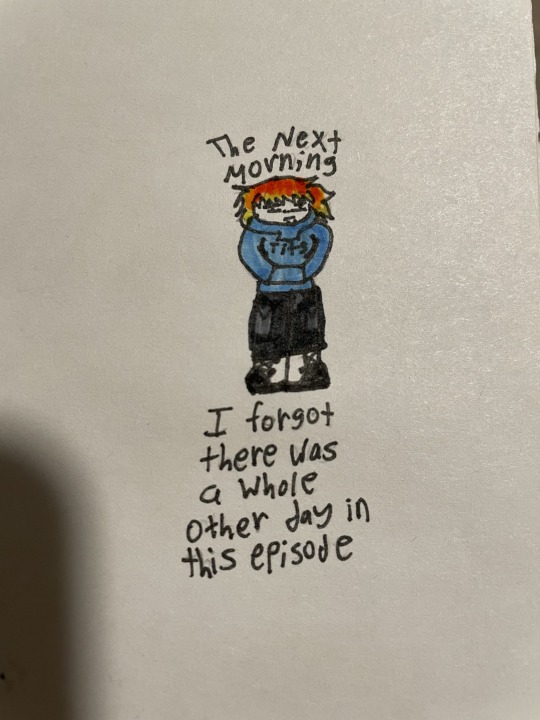 The Next
Morning
I forgot
there was
a whole
other day in
this episode